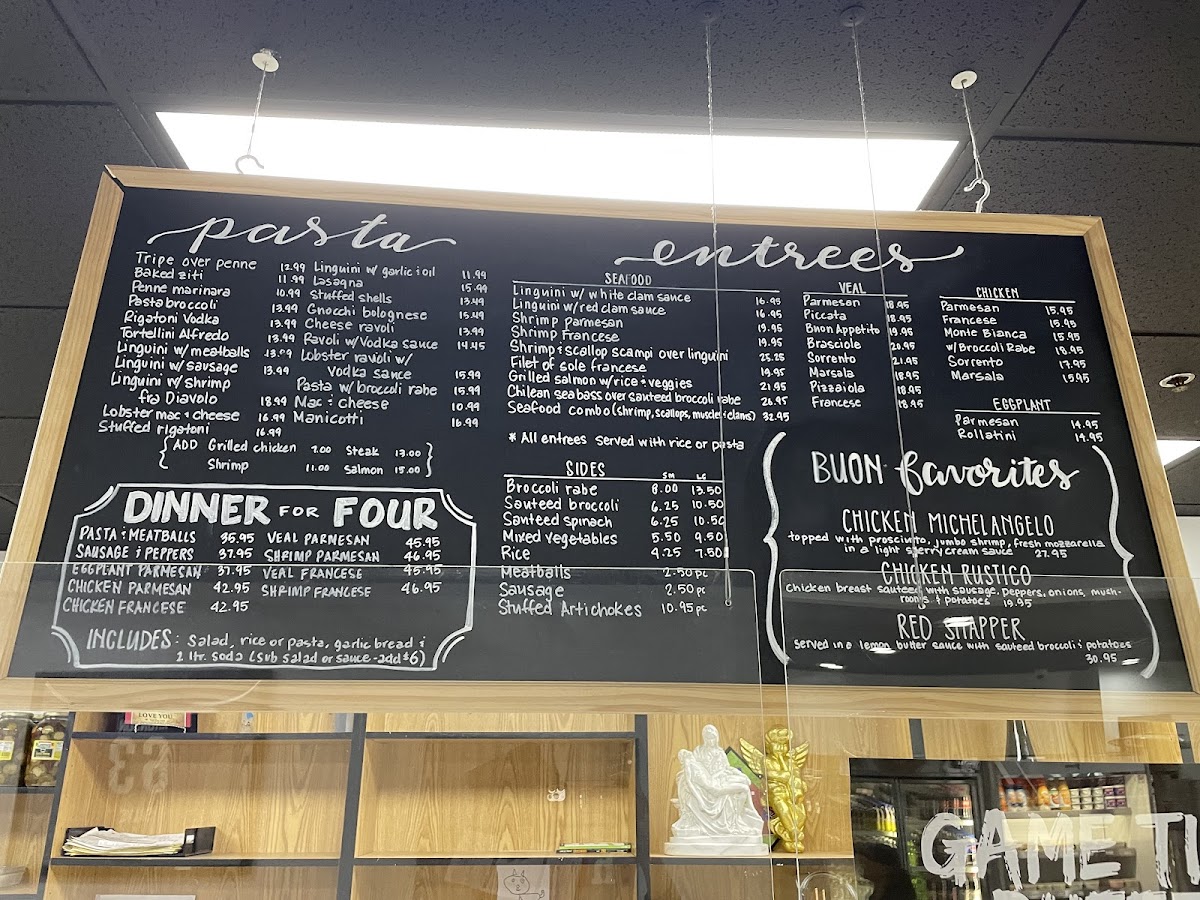 pasta
Tripe over penne 12.99
Baked ziti 11.99
Penne marinara 10.99
Pasta broccoli 13.99
Rigatoni Vodka 13.99
Tortellini Alfredo 13.99
Linguini w/ meatballs 13.99
Linguini w/ sausage 13.99
Linguini w/ shrimp
fra Diavolo 18.99
Lobster mac & cheese 16.99
Stuffed rigatoni 16.99
Linguini w/ garlic & oil 11.99
Lasagna 15.99
Stuffed shells 13.49
Gnocchi bolognese 15.49
Cheese ravoli 13.99
Ravoli w/ Vodka sauce 14.45
Lobster ravioli w/
Vodka sauce 15.99
Pasta w/ broccoli rabe 15.99
Mac & cheese 10.99
Manicotti 16.99
{ADD Grilled chicken 7.00 Steak 13.00
Shrimp 11.00 Salmon 15.00}
DINNER FOR FOUR
PASTA & MEATBALLS 35.95
SAUSAGE & PEPPERS 37.95
EGGPLANT PARMESAN 37.95
CHICKEN PARMESAN 42.95
CHICKEN FRANCESE 42.95
VEAL PARMESAN 45.95
SHRIMP PARMESAN 46.95
VEAL FRANCESE 45.95
SHRIMP FRANCESE 46.95
INCLUDES: Salad, rice or pasta, garlic bread &
2 ltr. soda (sub salad or sauce - add $6)
entrees
SEAFOOD
Linguini w/ white clam sauce 16.95
Linguini w/ red clam sauce 16.95
Shrimp parmesan 19.95
Shrimp Francese 19.95
Shrimp & scallop scampi over linguini 25.25
Filet of sole francese 19.95
Grilled salmon w/ rice & veggies 21.95
Chilean seabass over sauteed broccoli rabe 26.95
Seafood combo (shrimp, scallops, muscles & clams) 32.95
* All entrees served with rice or pasta
SIDES SM LG
Broccoli rabe 8.00 13.50
Sauteed broccoli 6.25 10.50
Santeed spinach 6.25 10.50
Mixed vegetables 5.50 9.50
Rice 4.25 7.50
Meatballs 2.50 pc
Sausage 2.50 pc
Stuffed Artichokes 10.95 pc
VEAL
Parmesan 18.95
Piccata 18.95
Buon Appetito 19.95
Brasciole 20.95
Sorrento 21.95
Marsala 18.95
Pizzaiola 18.95
Francese 18.95
CHICKEN
Parmesan 15.95
Francese 15.95
Monte Bianca 15.95
w/ Broccoli Rabe 18.95
Sorrento 17.95
Marsala 15.95
EGGPLANT
Parmesan 14.95
Rollatini 14.95
BUON favorites
CHICKEN MICHELANGELO
topped with prosciuto, jumbo shrimp, fresh mozzarella
in a light sherry cream sauce 27.95
CHICKEN RUSTICO
Chicken breast sauteed with sausage, peppers, onions, mush-
rooms & potatoes 19.95
RED SNAPPER
served in a lemon butter sauce with sauteed broccoli & potatoes
30.95
LOVE YOU
GAME TI